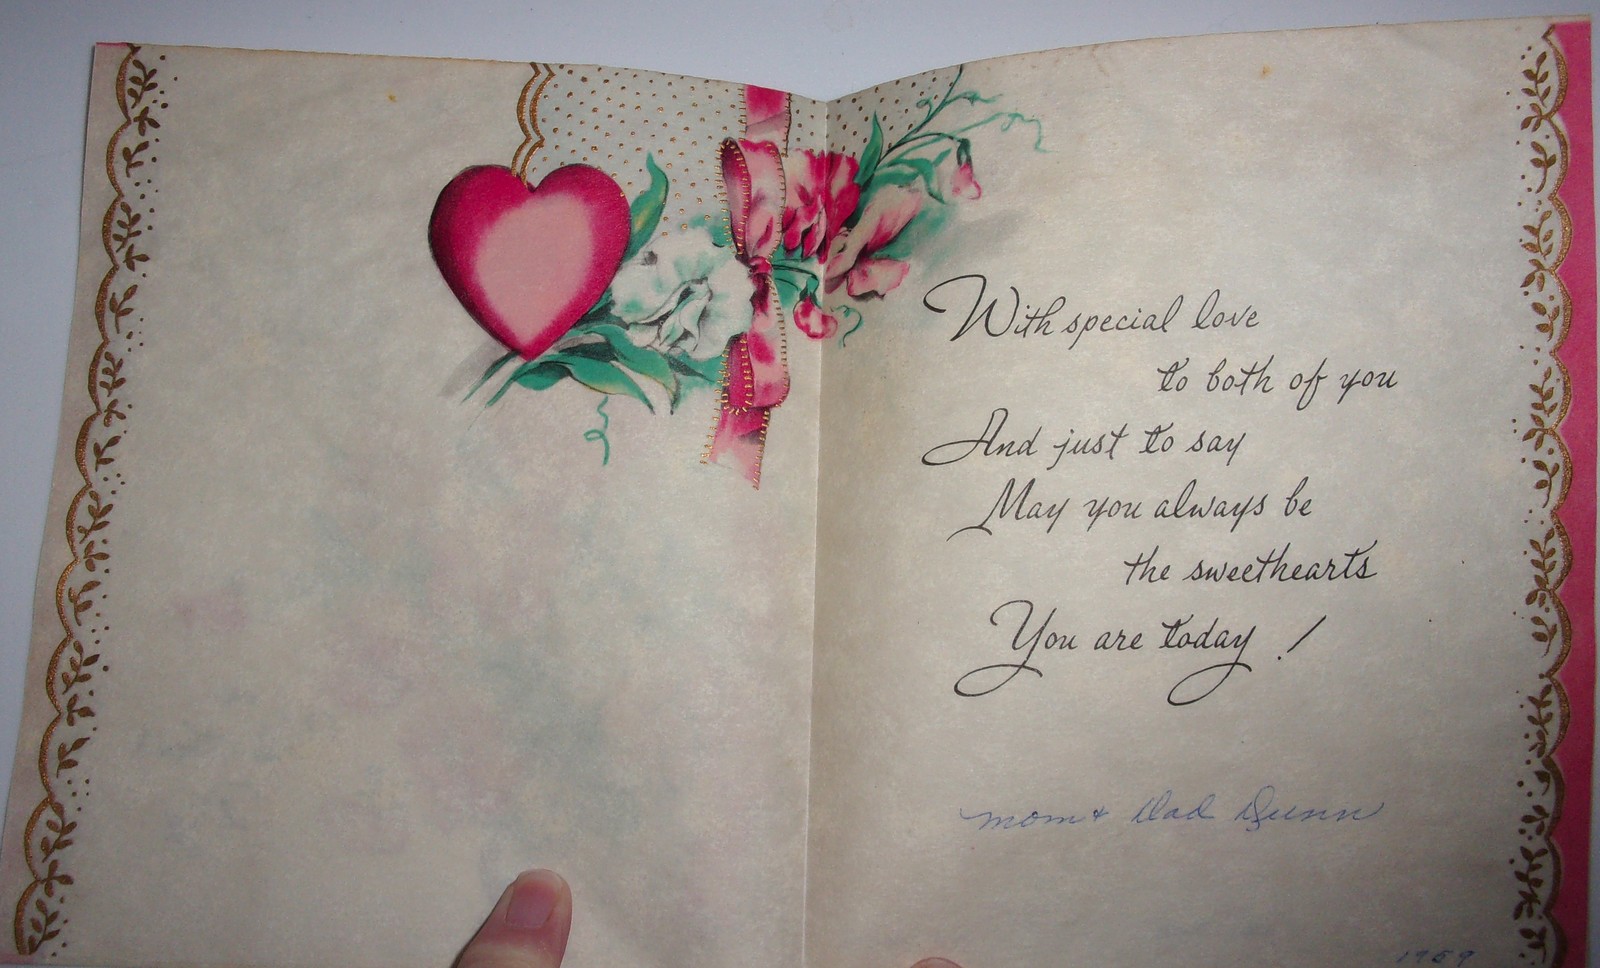 With special love
to both of you
And just to say
May you always be
the sweethearts
You are today!
Mom + Dad Dunn
1959